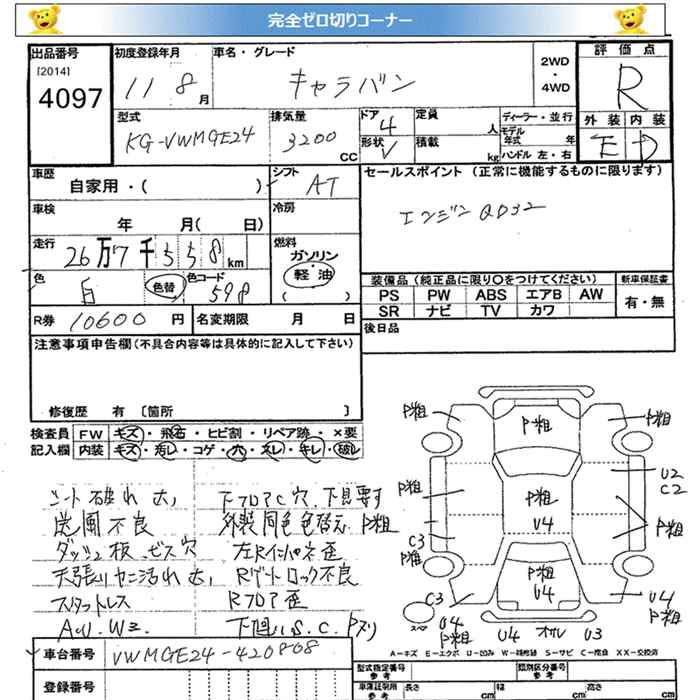 完全ゼロ切りコーナー
出品番号 初度登録年月 車名・グレード 2WD・4WD 評価点
[2014]
4097 11 8月 キャラバン R
型式 排気量 ドア 定員 ディーラー・並行 外装 内装
KG-VWMGE24 3200CC 4 人 モデル年式 年 E D
形状 V 積載 kg ハンドル 左・右
車歴 シフト セールスポイント (正常に機能するものに限ります)
自家用・( ) AT
エンジン QD32
車検 冷房
年 月( 日)
走行 燃料
26万7千558km ガソリン・軽油
( )
色 白 色替 色コード 598
装備品 (純正品に限り○をつけてください) 新車保証書
PS PW ABS エアB AW 有・無
SR ナビ TV カワ
R券 10600円 名変期限 月 日 後日品
注意事項申告欄 (不具合内容等は具体的に記入して下さい)
修復歴 有 [箇所 ]
検査員 FW キズ・飛石・ヒビ割・リペア跡・×要
記入欄 内装 キズ・汚レ・コゲ・穴・スレ・キレ・破レ
シート破れ大, 下フロアC穴,下見要す
送風不良 外装同色色替え P粗
ダッシュ板ビス穴
天張りヤニ汚れ大, Rゲートロック不良
スタットレス Rフロア歪
A.U.W2 下廻りS.C.Pズリ
P粗 P粗 P粗
U2
C2
P粗 P粗
U4
P粗
C3
P粗
P粗
U4
C3 U4
P粗
スペア U4
P粗 U4 オサレ U3
A-キズ E-エクボ U-凹み W-補修跡 S-サビ C-腐食 XX-交換済
車台番号 VWMGE24-420808
登録番号
型式指定番号 参考 類別区分番号 参考
車庫証明用 参考 長さ cm 幅 cm 高さ cm